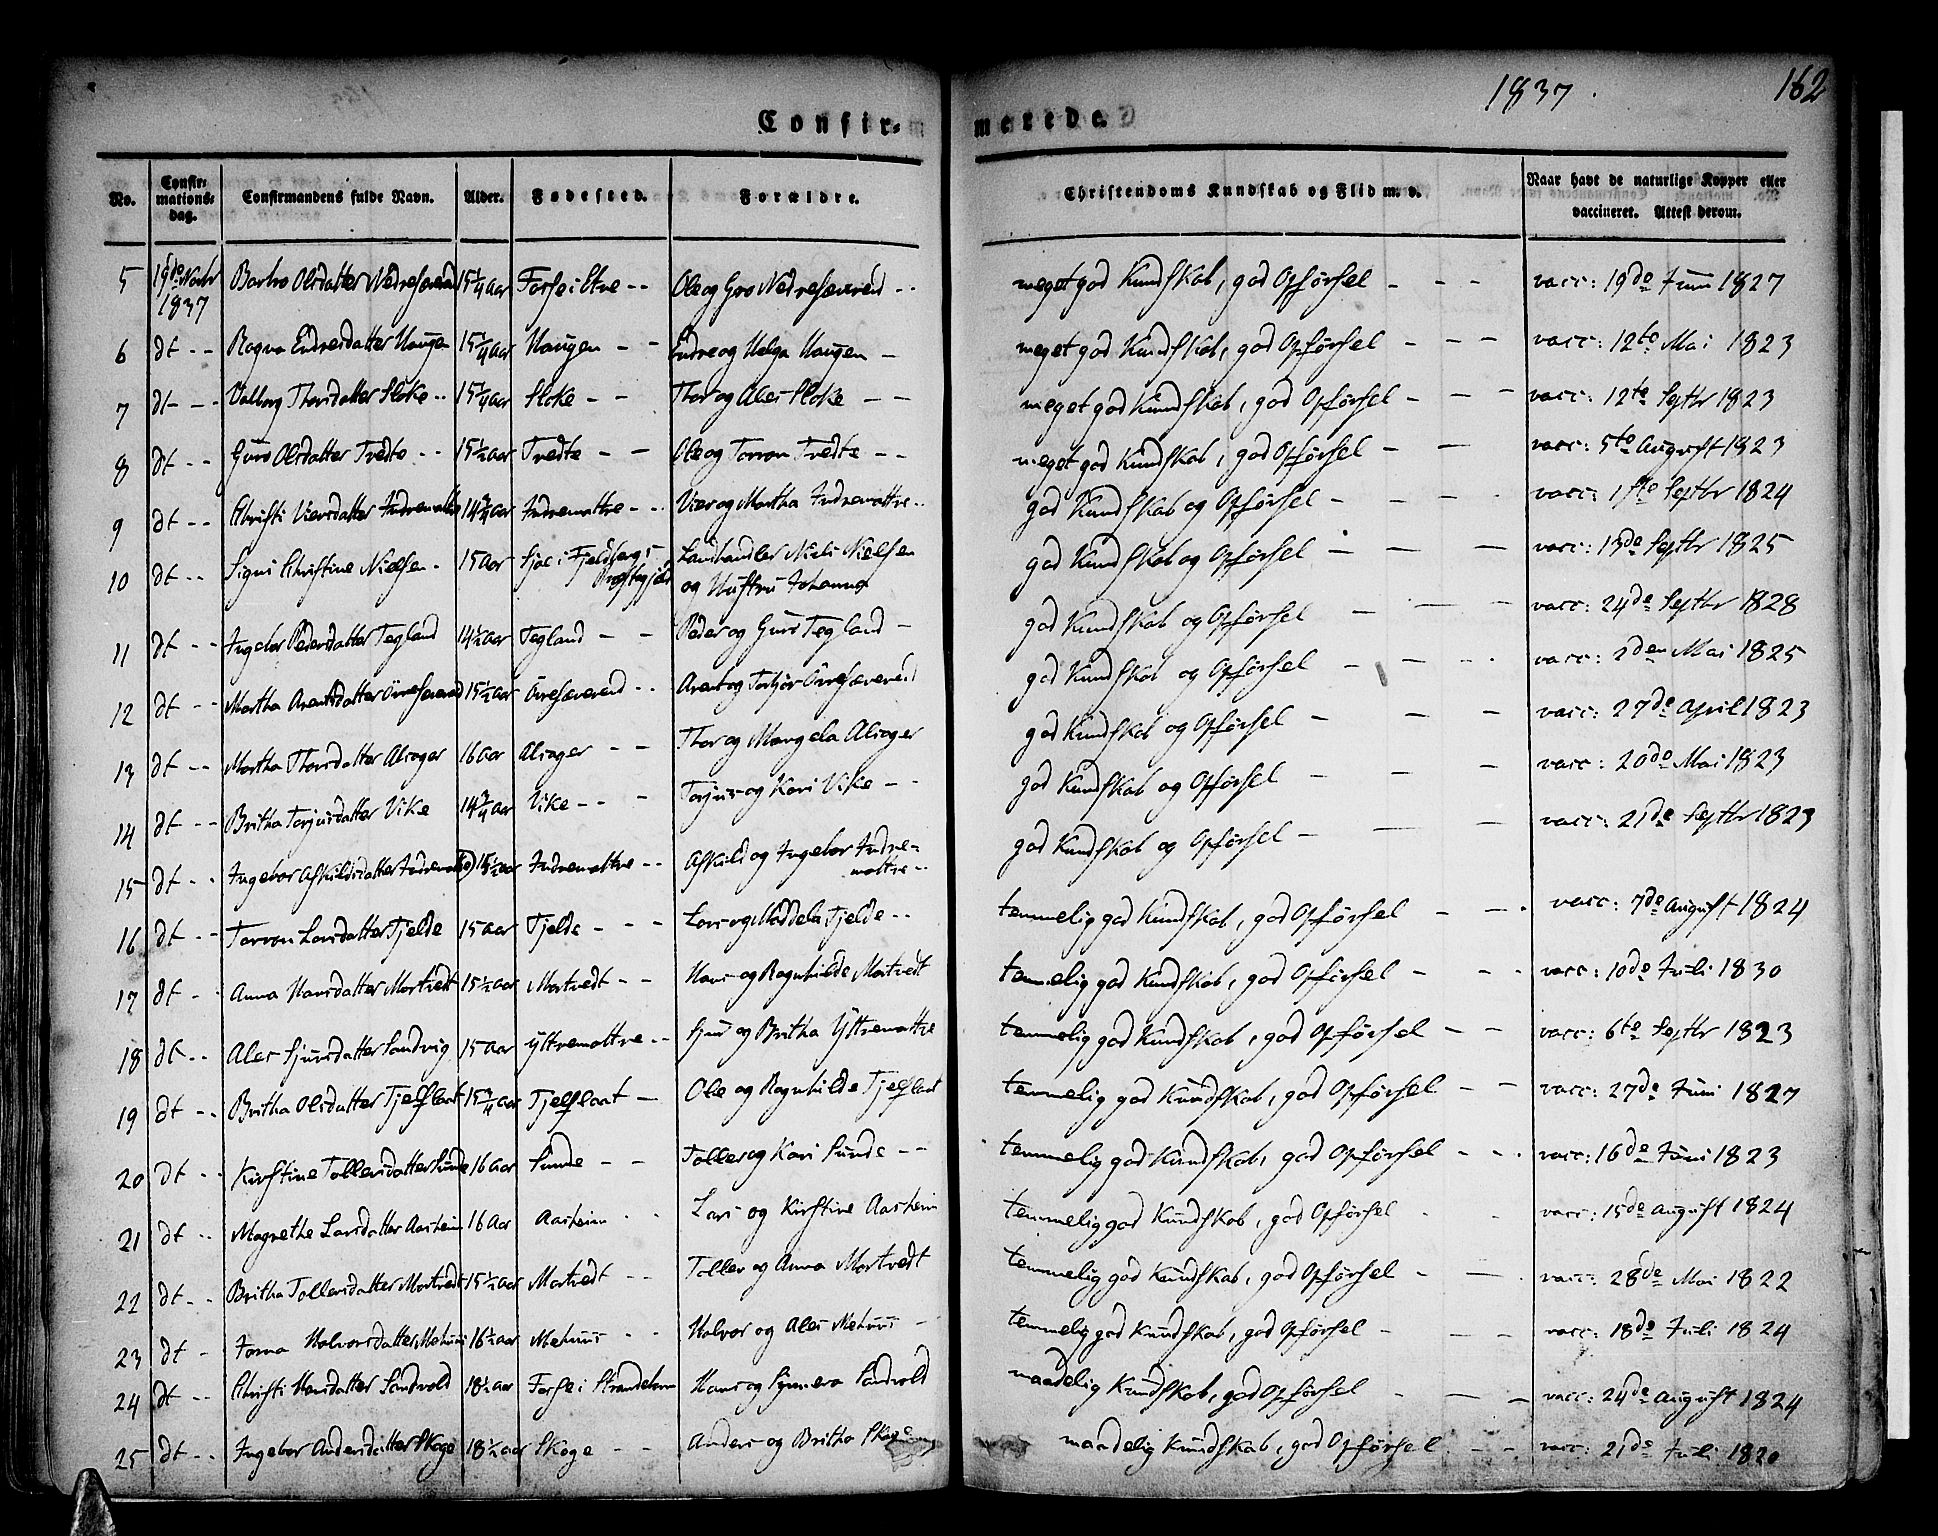 1837
162
Confir-
merede.
No. Confir-mations-dag. Confirmandens fulde Navn. Alder. Fødested. Forældre. Christendoms Kundskab og Flid m. v. Naar havt de naturlige Kopper eller vaccineret. Attest derom.
5 19de Novbr 1837 Barbro Olsdatter Nedresævereid 15 1/4 Aar Ole og Gro Nedresævereid - - meget god Kundskab, god Opførsel - - - vacc: 19de Juni 1827
6 dt - - Ragna Endresdatter Haugen 15 1/4 Aar Haugen - - Endre og Helga Haugen - meget god Kundskab, god Opførsel - - - vacc: 12te Mai 1823
7 dt - - Valborg Thorsdatter Støke - - 15 1/4 Aar Støke - - Thor og Ales Støke - - meget god Kundskab, god Opførsel - - - vacc: 12te Septbr 1823
8 dt - - Guro Olsdatter Tvedte - - 15 1/2 Aar Tvedte - - Ole og Torvon Tvedte - - meget god Kundskab, god Opførsel - - - vacc: 5te August 1823
9 dt - - Christi Viersdatter Indremattre 14 3/4 Aar Indremattre - - Vier og Martha Indremattre - - god Kundskab og Opførsel - - - - vacc: 1ste Septbr 1824
10 dt - - Signi Christine Nielsen - 15 Aar Fjeldbergs Præstegjæld Landhandler Niels Nielsen og Hustru Johanna god Kundskab og Opførsel - - - vacc: 13de Septbr 1825
11 dt - - Ingebor Pedersdatter Tegland 14 1/2 Aar Tegland - - Peder og Guro Tegland - god Kundskab og Opførsel - - - vacc: 24de Septbr 1828
12 dt - - Martha Arentsdatter Øvresævereid 15 1/2 Aar Øvresævereid - - Arent og Torbjør Øvresævereid god Kundskab og Opførsel - - - - vacc: 2den Mai 1825
13 dt - - Martha Thorsdatter Alsager 16 Aar Alsager - - Thor og Mangela Alsager god Kundskab og Opførsel - - - vacc: 27de April 1823
14 dt - - Britha Torjusdatter Vike 14 3/4 Aar Vike - - - Torjus og Kari Vike - - god Kundskab og Opførsel - - - vacc: 20de Mai 1823
15 dt - - Ingebor Askildsdatter Indremattre 15 1/2 Aar Indremattre - - Askild og Ingebor Indre-mattre - - god Kundskab og Opførsel - - - vacc: 21de Septbr 1823
16 dt - - Torvon Larsdatter Tjelde 15 Aar Tjelde - - - Lars og Maddela Tjelde - - temmelig god Kundskab, god Opførsel - - - vacc: 7de August 1824
17 dt - - Anna Hansdatter Mortvedt 15 1/2 Aar Mortvedt - - Hans og Ragnhilde Mortvedt temmelig god Kundskab, god Opførsel - - - vacc: 10de Juli 1830
18 dt - - Ales Sjursdatter Sandvig 15 Aar Yttremattre - - Sjur og Britha Yttremattre temmelig god Kundskab, god Opførsel - - vacc: 6te Septbr 1823
19 dt - - Britha Olsdatter Tjelflaat Tjelflaat - Ole og Ragnhilde Tjelflaat temmelig god Kundskab, god Opførsel - - vacc: 27de Juni 1827
20 dt - - Kirstine Tollersdatter Sunde 16 Aar Sunde - - Toller og Kari Sunde - - temmelig god Kundskab, god Opførsel - - - vacc: 16de Juni 1823
21 dt - - Magrethe Larsdatter Aasheim 16 Aar Aasheim - - Lars og Kirstine Aasheim temmelig god Kundskab, god Opførsel - - vacc: 15de August 1824
22 dt - - Britha Tollersdatter Mortvedt 15 1/2 Aar Mortvedt - - Toller og Anna Mortvedt temmelig god Kundskab, god Opførsel - - - vacc: 28de Mai 1822
23 dt - Halvorsdatter Mehuus 16 1/2 Aar Mehuus - - Halvor og Ales Mehuus - temmelig god Kundskab, god Opførsel - - - vacc: 18de Juli 1824
24 dt - - Christi Hansdatter Sandvold 18 1/2 Aar Hans og Synneva Sandvold maadelig Kundskab, god Opførsel - - - vacc: 24de August 1824
25 dt - - Ingebor Andersdatter Skoge 18 1/2 Aar Skoge - - Anders og Britha Skoge maadelig Kundskab, god Opførsel - - - vacc: 21de Juli 1820